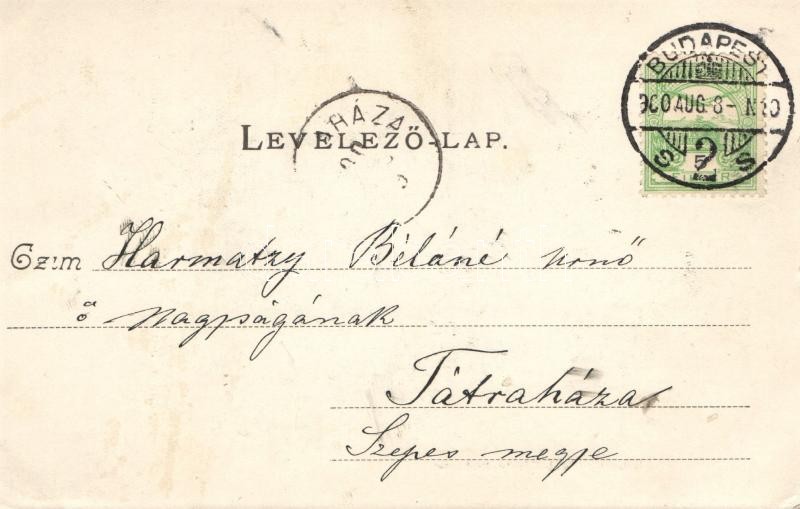 BUDAPEST
900 AUG 8 - N10
S 2 S
5
HÁZA
LEVELEZŐ-LAP.
Czim Harmatzy Béláné urnő
ő nagyságának
Tátraháza
Szepes megye